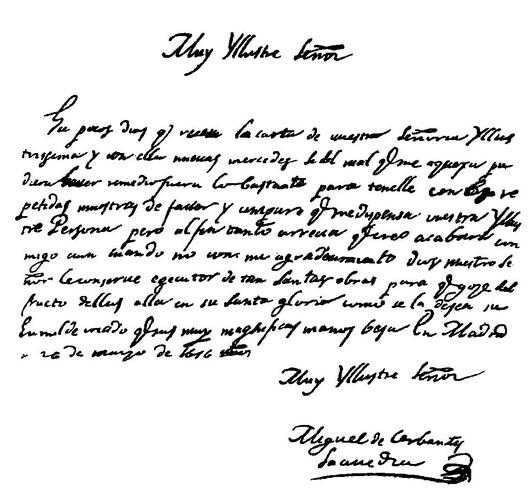 Muy Yllustre Señor
Ha pocos dias q̃ recevi la carta de vuestra Señoria Yllus
trissima y con ella nuevas mercedes si del mal q̃ me aquexa pu
diera haver remedio fuera lo bastante para tenelle con las re
petidas muestras de favor y amparo q̃ me dispensa vuestra Yllus
tre Persona pero al fin tanto arrecia q̃ creo acabara con
migo aun cuando no con mi agradecimiento Dios nuestro Se
ñor le conserve egecutor de tan santas obras para q̃ goze del
fructo dellas alla en su santa gloria como se la desea su
humilde criado q̃ sus muy magnificas manos besa En Madrid
a 26 de marzo de 1616 años
Muy Yllustre Señor
Miguel de Cerbantes
Saavedra